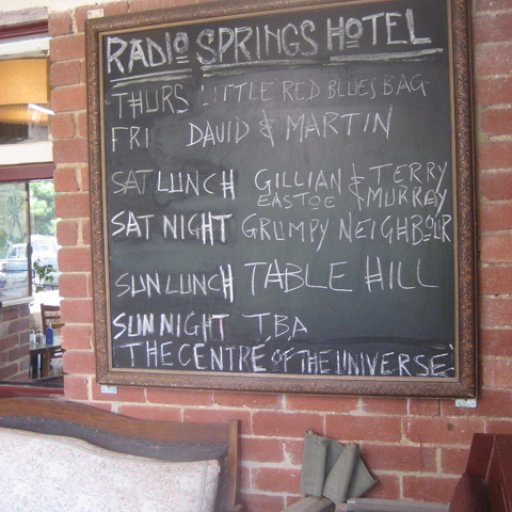 RADIO SPRINGS HOTEL
THURS LITTLE RED BLUES BAG
FRI DAVID & MARTIN
SAT LUNCH GILLIAN & TERRY
EASTOE & MURRAY
SAT NIGHT GRUMPY NEIGHBOUR
SUN LUNCH TABLE HILL
SUN NIGHT T.B.A
"THE CENTRE OF THE UNIVERSE"